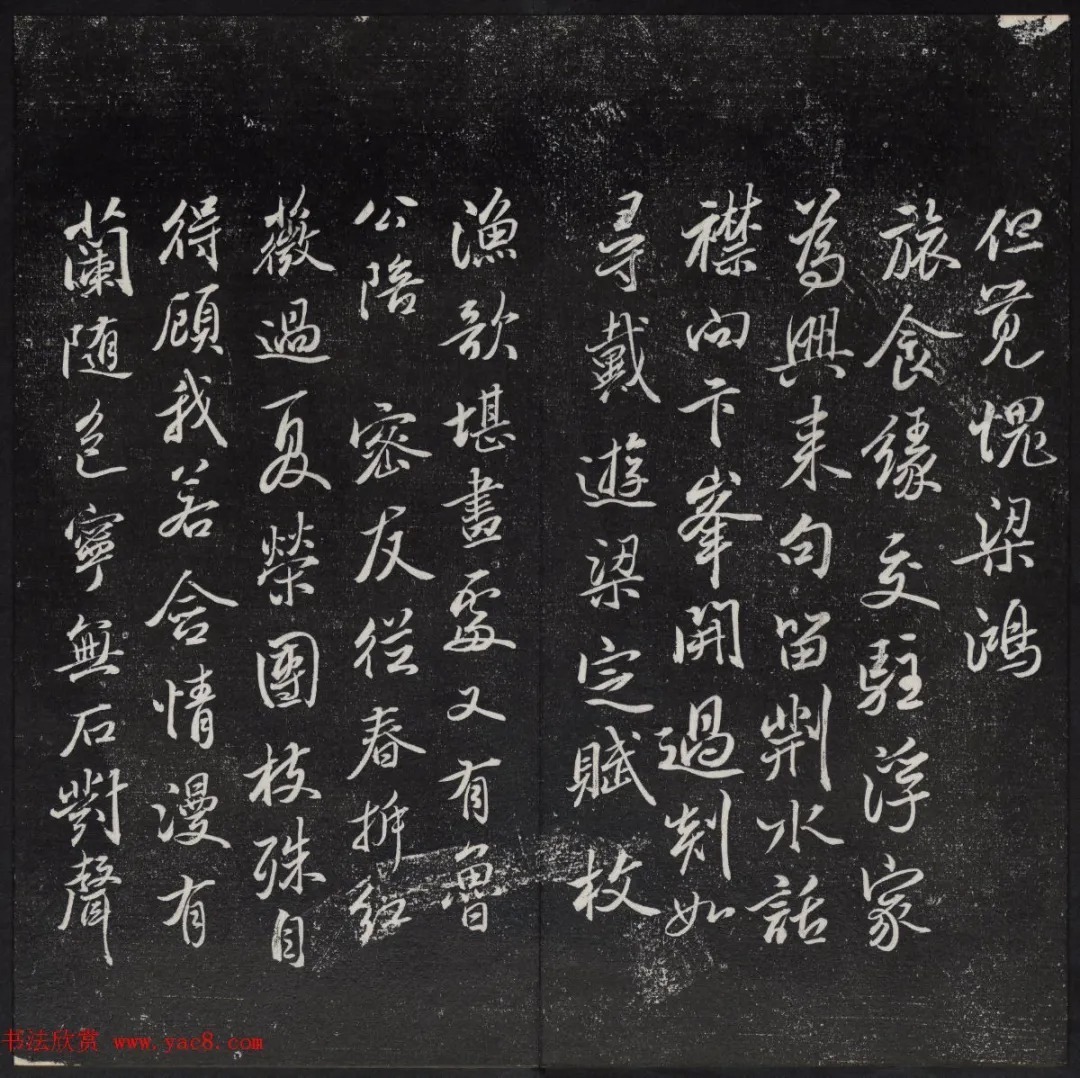 但覚愧梁鴻
旅食緣交駐浮家
為興来句留荆水話
襟向卞峯開過剡如
尋戴遊梁定賦枚
漁歌堪畫處又有魯
公陪 密友從春拆紅
薇過夏榮團枝殊自
得顧我若含情漫有
蘭随色寧無石對聲
书法欣赏 www.yac8.com